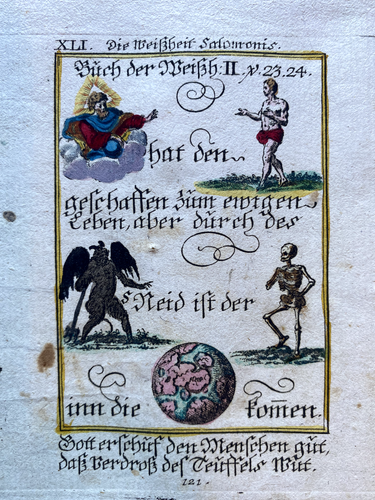 XLI. Die Weißheit Salomonis.
Buch der Weißh: II v. 23. 24.
hat den
geschaffen zum ewigen
Leben, aber durch des
s Neid ist der
inn die kom̅en.
Gott erschuf den Menschen gut,
daß verdroß des Teuffels Wut.
121.